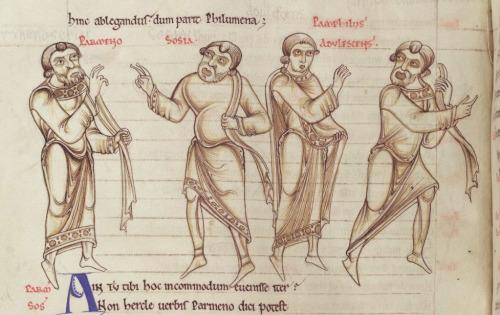 hinc ablegandus· dum parit Philumena;
PARMENO
SOSIA
PAMPHILUS
ADULESCENS
PARM
AIN TU tibi hoc incommodum euenisse iter
SOS
Non hercle uerbis Parmeno dici potest